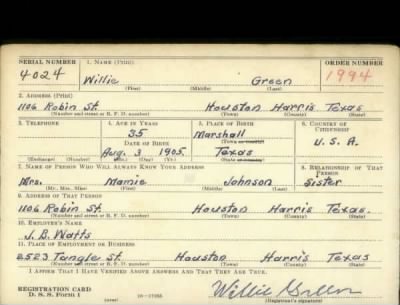 SERIAL NUMBER 1. NAME (Print) ORDER NUMBER
4024 Willie Green 1994
(First) (Middle) (Last)
2. ADDRESS (Print)
1106 Robin St. Houston Harris Texas
(Number and street or R. F. D. number) (Town) (County) (State)
3. TELEPHONE 4. AGE IN YEARS 5. PLACE OF BIRTH 6. COUNTRY OF CITIZENSHIP
35 Marshall
DATE OF BIRTH (Town or county) U. S. A.
Aug. 3 1905 Texas
(Exchange) (Number) (Mo.) (Day) (Yr.) (State or country)
7. NAME OF PERSON WHO WILL ALWAYS KNOW YOUR ADDRESS 8. RELATIONSHIP OF THAT PERSON
Mrs. Mamie Johnson Sister
(Mr., Mrs., Miss) (First) (Middle) (Last)
9. ADDRESS OF THAT PERSON
1106 Robin St. Houston Harris Texas.
(Number and street or R. F. D. number) (Town) (County) (State)
10. EMPLOYER'S NAME
J. B. Watts
11. PLACE OF EMPLOYMENT OR BUSINESS
2523 Tangle St. Houston Harris Texas
(Number and street or R. F. D. number) (Town) (County) (State)
I AFFIRM THAT I HAVE VERIFIED ABOVE ANSWERS AND THAT THEY ARE TRUE.
REGISTRATION CARD
D. S. S. Form 1 Willie Green
(Registrant's signature)